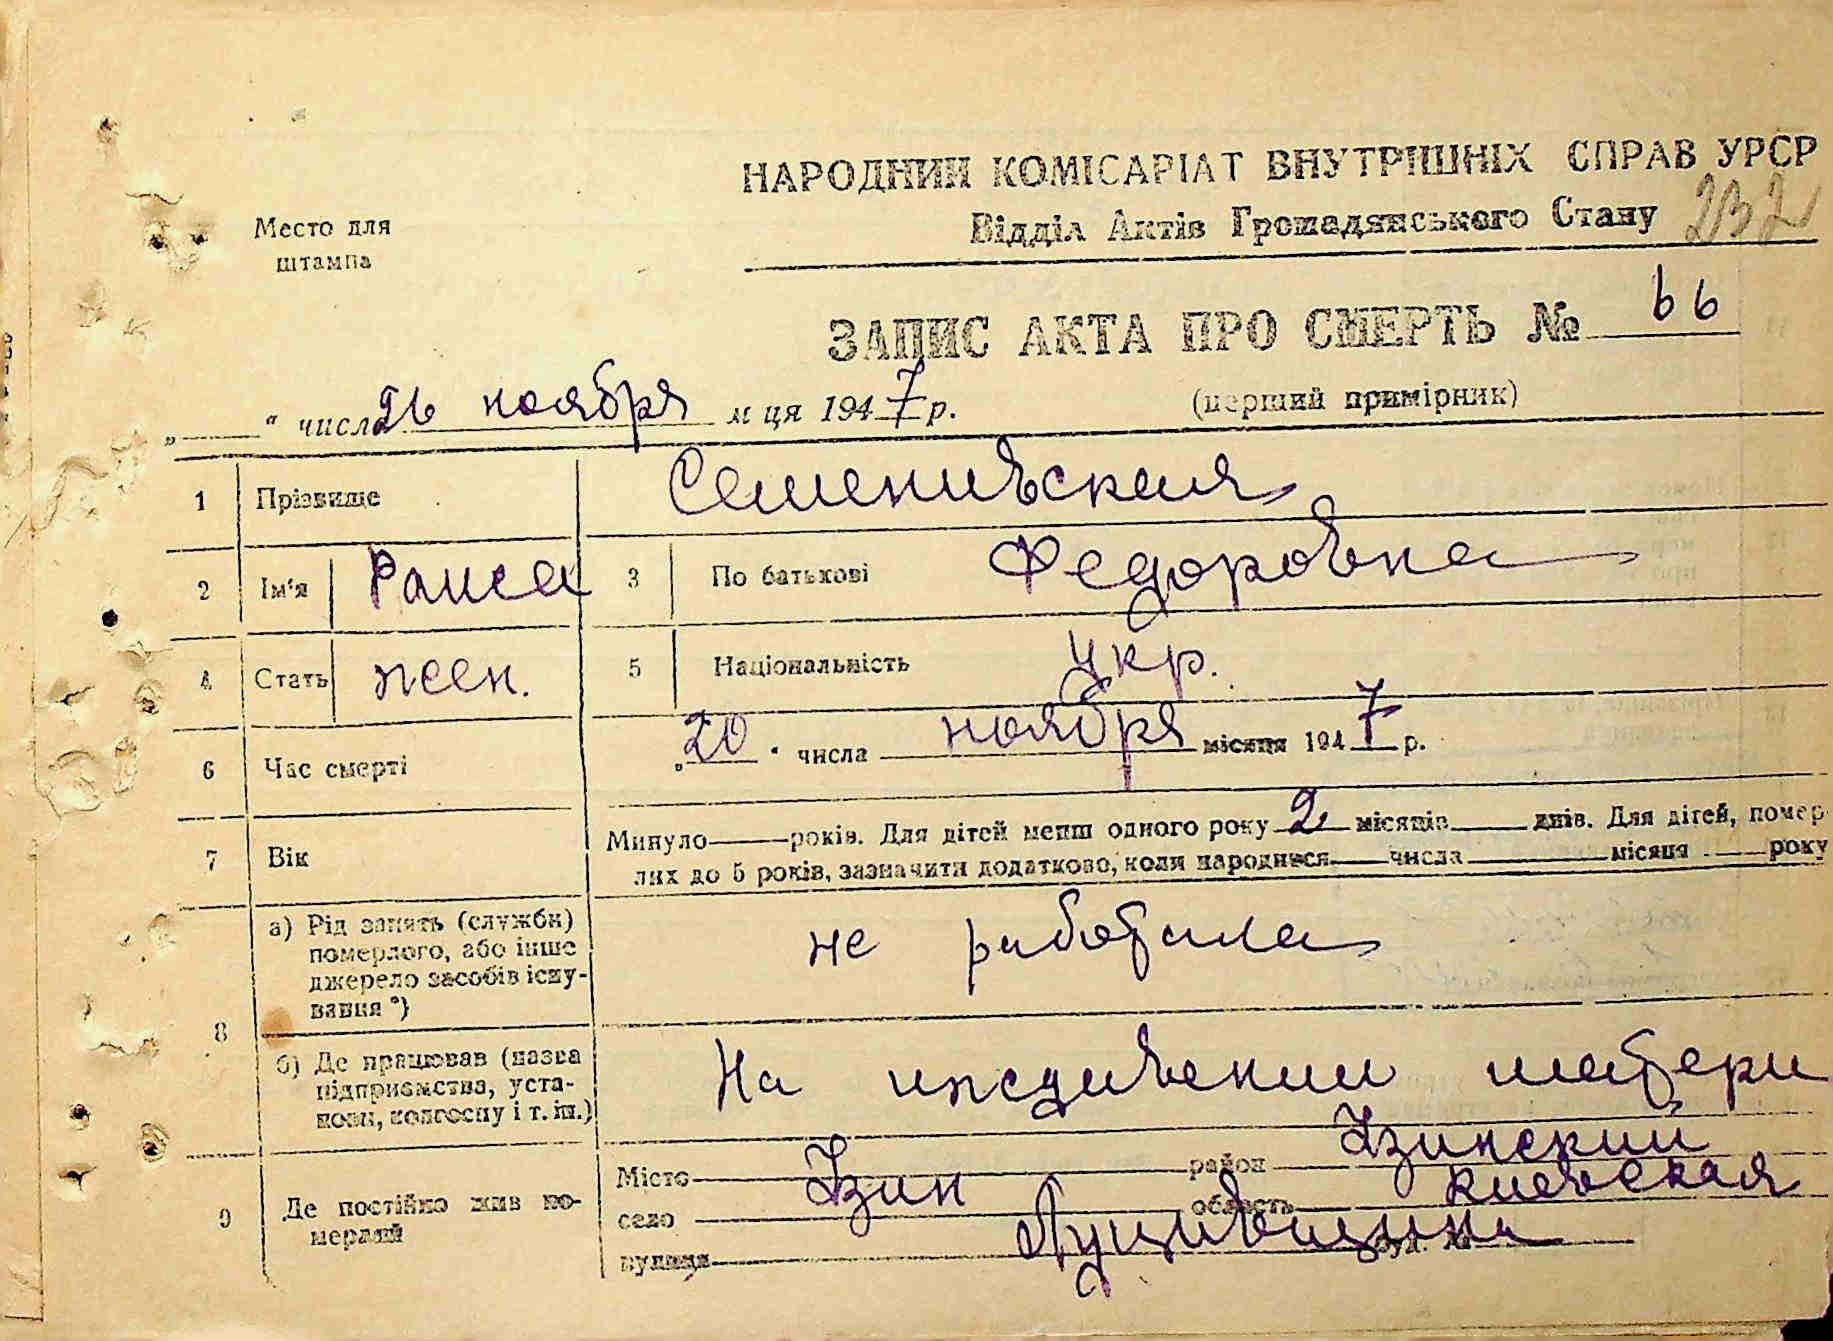 НАРОДНИЙ КОМІСАРІАТ ВНУТРІШНІХ СПРАВ УРСР
Відділ Актів Громадянського Стану 232
Место для
штампа
ЗАПИС АКТА ПРО СМЕРТЬ № 66
(перший примірник)
„ “ числа 26 ноября м ця 1947 р.
1 Прізвище Семенивская
2 Ім'я Раиса 3 По батькові Федоровна
4 Стать жен. 5 Національність укр.
6 Час смерті „20“ числа ноября місяця 1947 р.
7 Вік Минуло — років. Для дітей менш одного року 2 місяців — днів. Для дітей, помер-
лих до 5 років, зазначити додатково, коли народився — числа — місяця — року
8 а) Рід занять (служби)
померлого, або інше
джерело засобів існу-
вання *)
не работала
б) Де працював (назва
підприємства, уста-
нови, колгоспу і т. ін.)
На иждивении матери
9 Де постійно жив по-
мерлий
Місто Узин район Узинский
село область киевская
вулиця Луцивщина буд. №